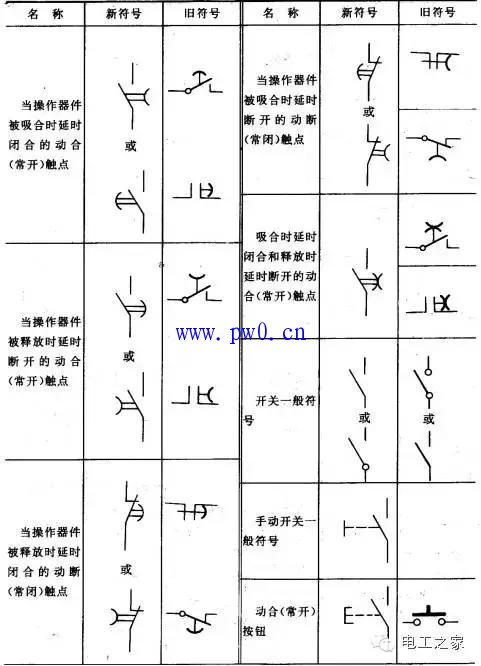 名 称 新符号 旧符号
当操作器件
被吸合时延时
闭合的动合
(常开)触点
或
当操作器件
被释放时延时
断开的动合
(常开)触点
或
当操作器件
被释放时延时
闭合的动断
(常闭)触点
或
名 称 新符号 旧符号
当操作器件
被吸合时延时
断开的动断
(常闭)触点
或
吸合时延时
闭合和释放时
延时断开的动
合(常开)触点
开关一般符
号
或
或
手动开关一
般符号
动合(常开)
按钮
www.pw0.cn
电工之家